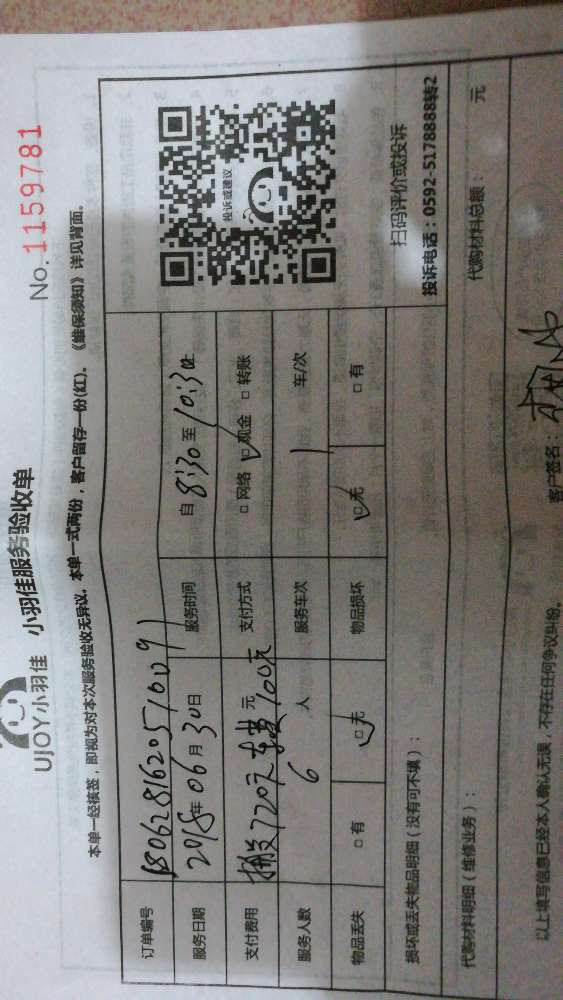 UJOY小羽佳 小羽佳服务验收单
No. 1159781
本单一经核签，即视为对本次服务验收无异议。本单一式两份，客户留存一份(红)。《维保须知》详见背面。
订单编号
服务日期 2018年06月30日 服务时间 自 8:30 至 10:30 止
支付费用 搬设720元 车费100元 元 支付方式 □ 网络 □ 现金 □ 转账
服务人数 6 人 服务车次 1 车/次
物品丢失 □ 有 □ 无 物品损坏 □ 无 □ 有
投诉或建议
扫码评价或投诉
投诉电话：0592-5178888转2
损坏或丢失物品明细（没有可不填）：
代购材料明细（维修业务）： 代购材料总额： 元
以上填写信息已经本人确认无误，不存在任何争议纠纷。 客户签名：